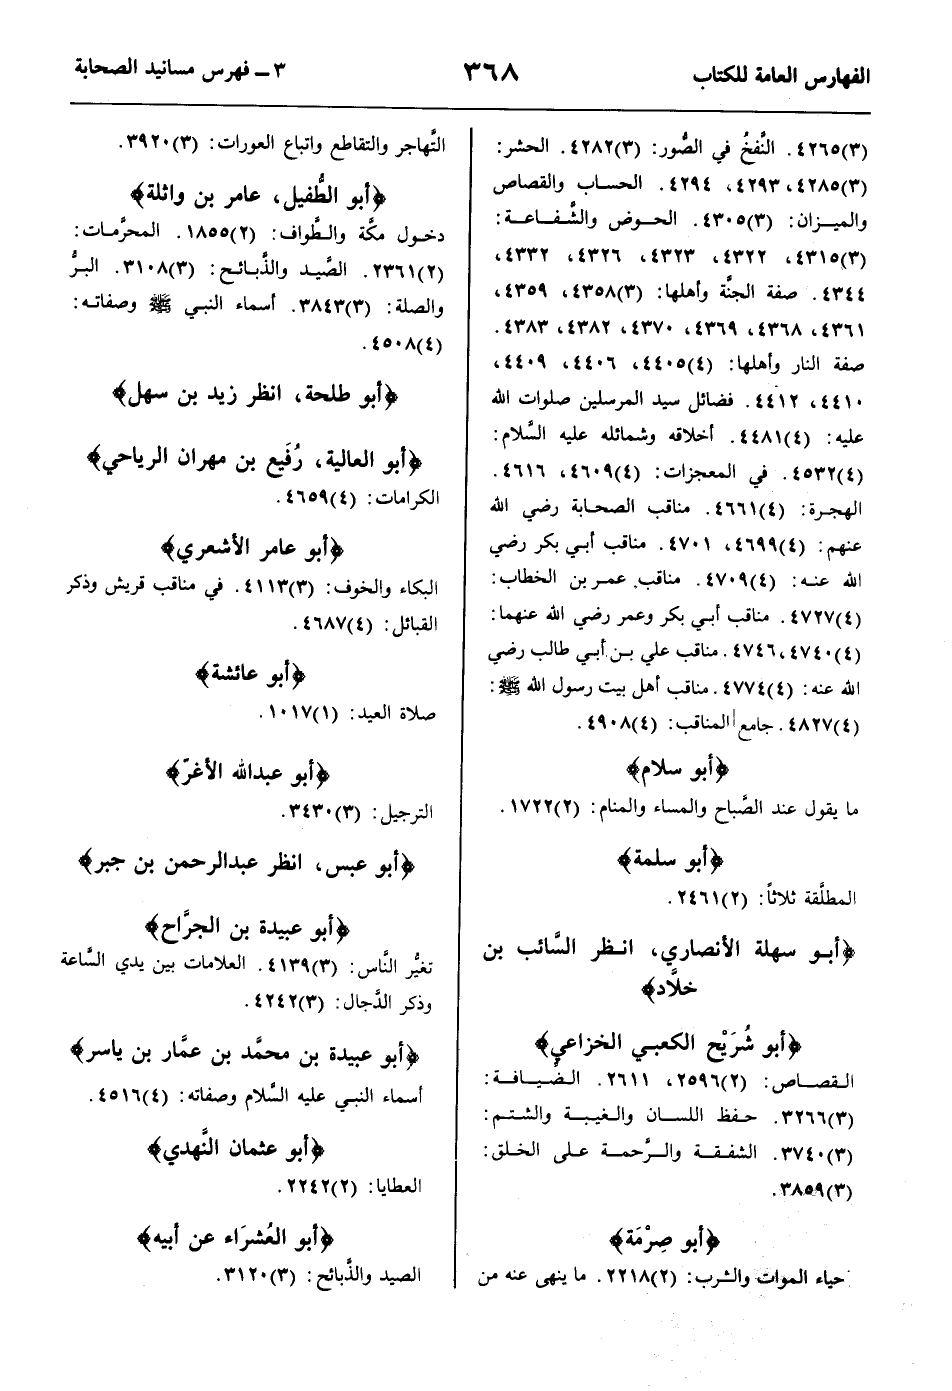 الفهارس العامة للكتاب ٣٦٨ ٣ ــ فهرس مسانيد الصحابة
(٣)٤٢٦٥. النَّفخُ في الصُّور: (٣)٤٢٨٢. الحشر:
(٣)٤٢٨٥، ٤٢٩٣، ٤٢٩٤. الحساب والقصاص
والميـزان: (٣)٤٣٠٥. الحـوض والشَّفـاعـة:
(٣)٤٣١٥، ٤٣٢٢، ٤٣٢٣، ٤٣٢٦، ٤٣٣٢،
٤٣٤٤. صفة الجنَّة وأهلها: (٣)٤٣٥٨، ٤٣٥٩،
٤٣٦١، ٤٣٦٨، ٤٣٦٩، ٤٣٧٠، ٤٣٨٢، ٤٣٨٣.
صفة النار وأهلها: (٤)٤٤٠٥، ٤٤٠٦، ٤٤٠٩،
٤٤١٠، ٤٤١٢. فضائل سيد المرسلين صلوات الله
عليه: (٤)٤٤٨١. أخلاقه وشمائله عليه السَّلام:
(٤)٤٥٣٢. في المعجزات: (٤)٤٦٠٩، ٤٦١٦.
الهجرة: (٤)٤٦٦١. مناقب الصحابة رضي الله
عنهم: (٤)٤٦٩٩، ٤٧٠١. مناقب أبـي بكر رضي
الله عنـه: (٤)٤٧٠٩. مناقب عمـر بن الخطاب:
(٤)٤٧٢٧. مناقب أبـي بكر وعمر رضي الله عنهما:
(٤)٤٧٤٠، ٤٧٤٦. مناقب علي بـن أبـي طالب رضي
الله عنه: (٤)٤٧٧٤. مناقب أهل بيت رسول الله ﷺ:
(٤)٤٨٢٧. جامع المناقب: (٤)٤٩٠٨.
﴿أبو سلام﴾
ما يقول عند الصَّباح والمساء والمنام: (٢)١٧٢٢.
﴿أبو سلمة﴾
المطلَّقة ثلاثاً: (٢)٢٤٦١.
﴿أبـو سهلة الأنصاري، انـظر السَّائب بن
خلاَّد﴾
﴿أبو شُرَيْح الكعبـي الخزاعي﴾
القصـاص: (٢)٢٥٩٦، ٢٦١١. الضِّيـافـة:
(٣)٣٢٦٦. حـفظ اللسان والـغيبـة والشتـم:
(٣)٣٧٤٠. الشفقـة والـرَّحمـة عـلى الخلق:
(٣)٣٨٥٩.
﴿أبو صِرْمَة﴾
حياء الموات والشرب: (٢)٢٢١٨. ما ينهى عنه من
التَّهاجر والتقاطع واتباع العورات: (٣)٣٩٢٠.
﴿أبو الطُّفيل، عامر بن واثلة﴾
دخـول مكَّة والـطَّواف: (٢)١٨٥٥. المحرَّمات:
(٢)٢٣٦١. الصَّيد والذَّبائـح: (٣)٣١٠٨. البرُّ
والصلة: (٣)٣٨٤٣. أسماء النبـي ﷺ وصفاته:
(٤)٤٥٠٨.
﴿أبو طلحة، انظر زيد بن سهل﴾
﴿أبو العالية، رُفَيع بن مهران الرياحي﴾
الكرامات: (٤)٤٦٥٩.
﴿أبو عامر الأشعري﴾
البكاء والخوف: (٣)٤١١٣. في مناقب قريش وذكر
القبائل: (٤)٤٦٨٧.
﴿أبو عائشة﴾
صلاة العيد: (١)١٠١٧.
﴿أبو عبدالله الأغرّ﴾
الترجيل: (٣)٣٤٣٠.
﴿أبو عبس، انظر عبدالرحمن بن جبر﴾
﴿أبو عبيدة بن الجرَّاح﴾
تغيُّر النَّاس: (٣)٤١٣٩. العلامات بين يدي السَّاعة
وذكر الدَّجال: (٣)٤٢٤٢.
﴿أبو عبيدة بن محمَّد بن عمَّار بن ياسر﴾
أسماء النبـي عليه السَّلام وصفاته: (٤)٤٥١٦.
﴿أبو عثمان النَّهدي﴾
العطايا: (٢)٢٢٤٢.
﴿أبو العُشرَاء عن أبيه﴾
الصيد والذَّبائح: (٣)٣١٢٠.